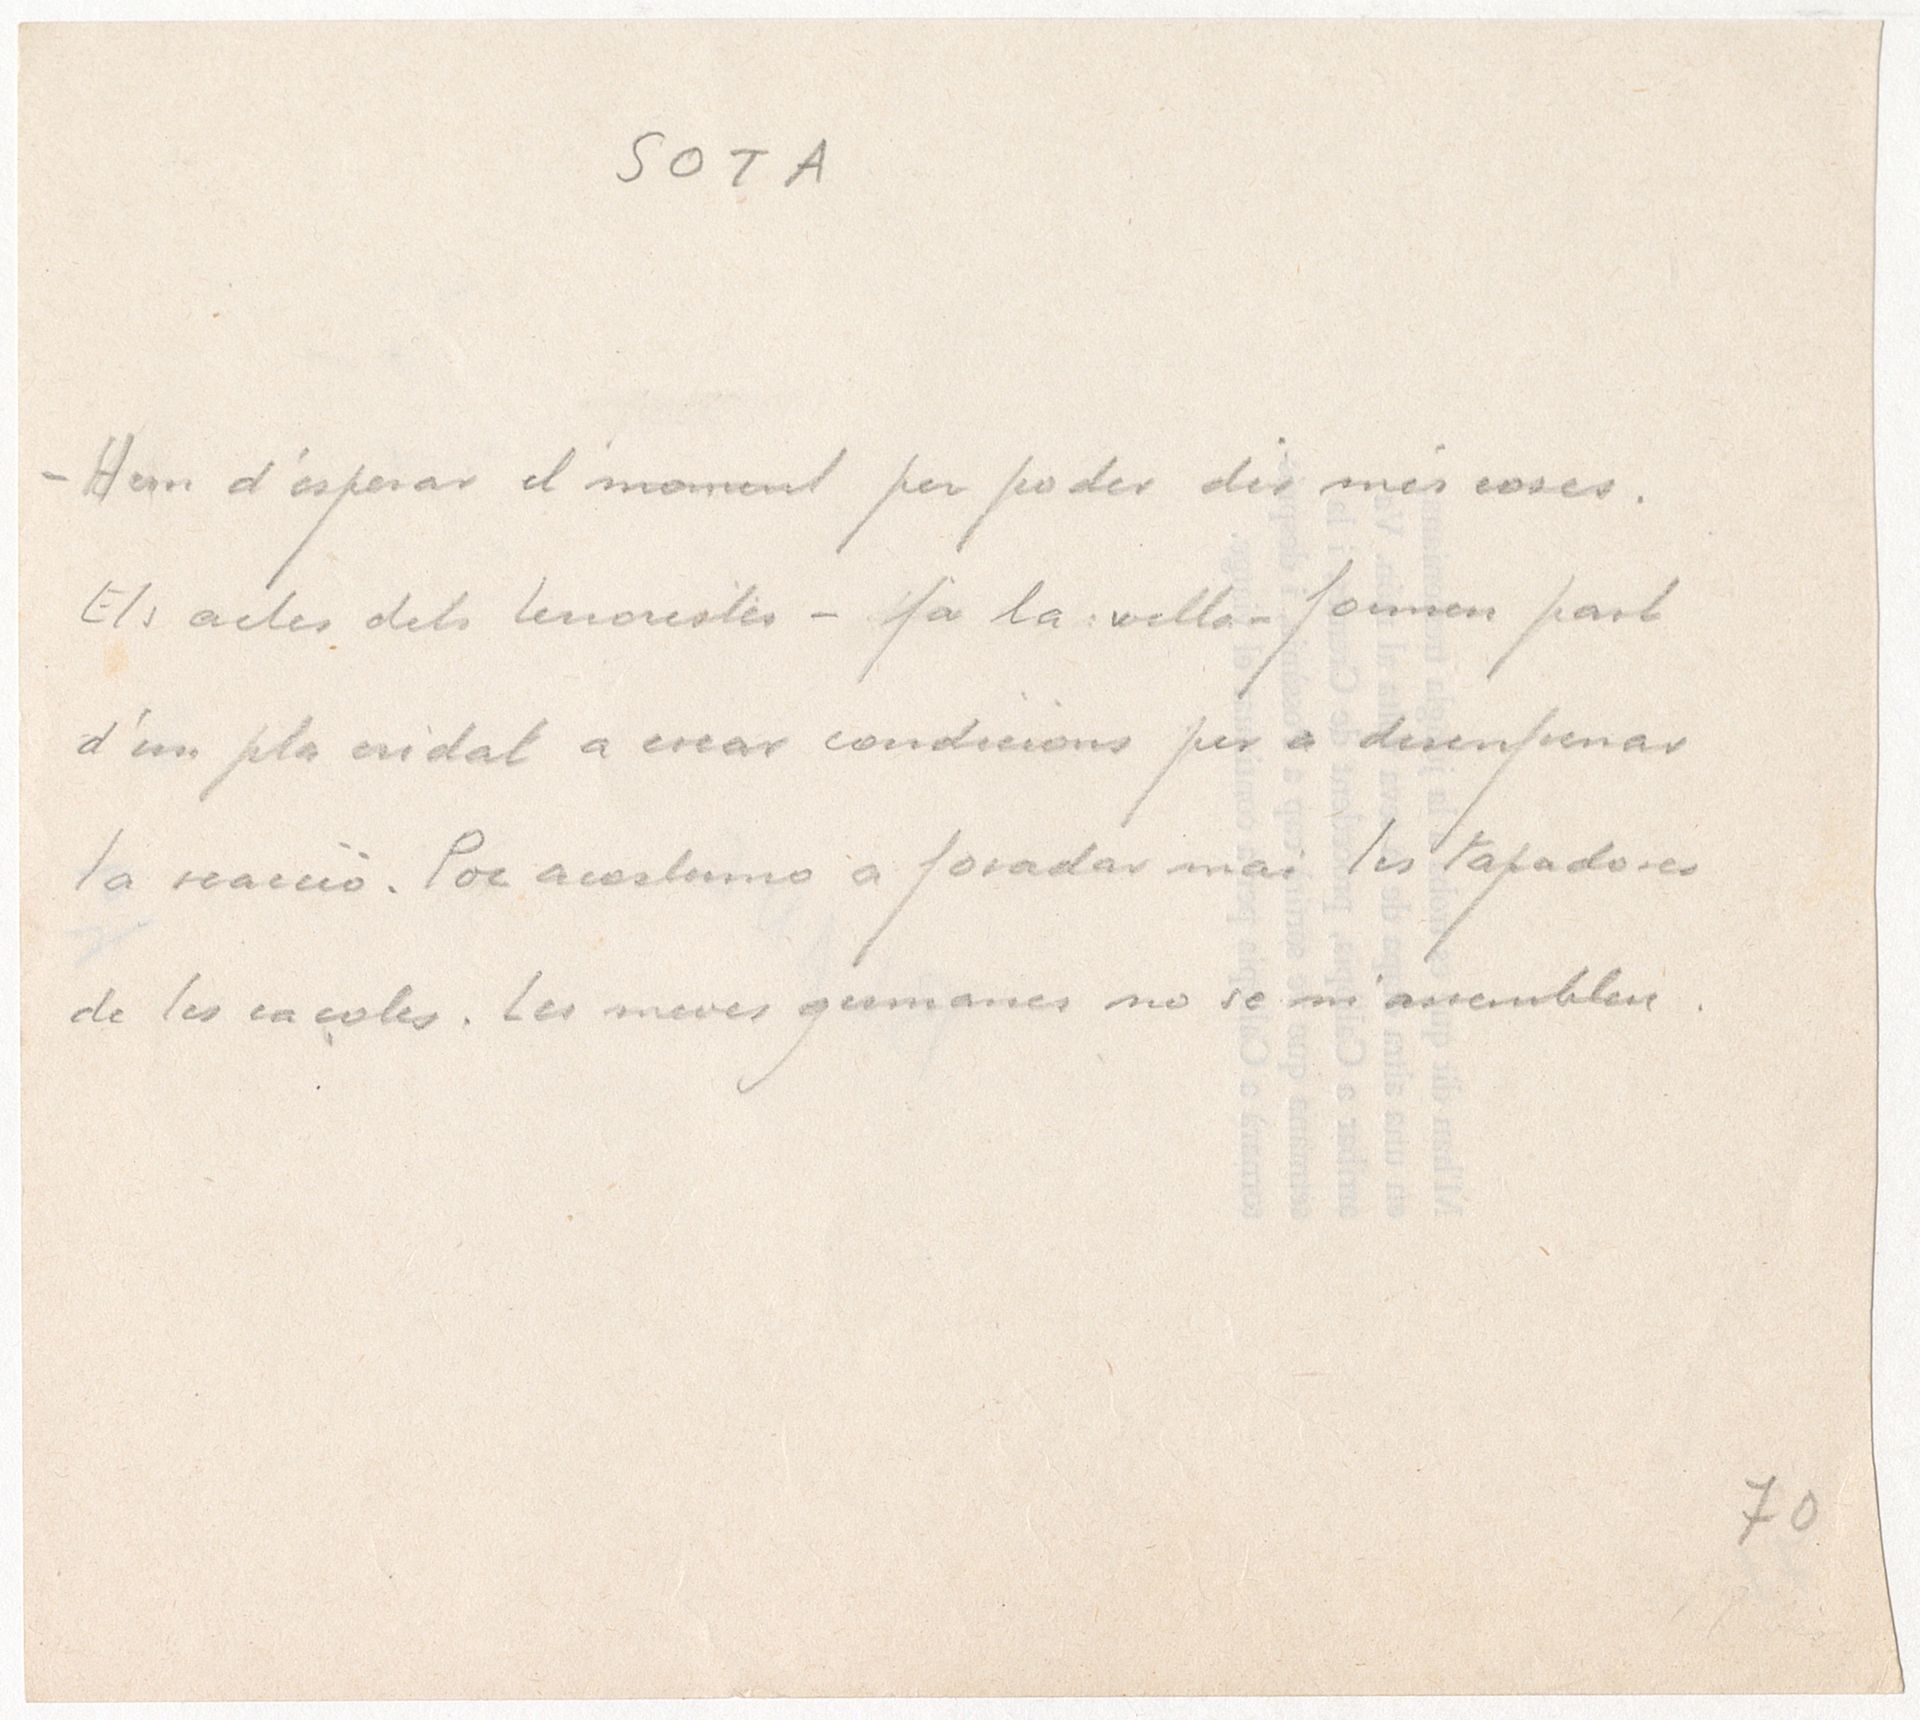 SOTA
- Hem d'esperar el moment per poder dir més coses.
Els actes dels terroristes - fa la vella - formen part
d'un pla cridat a crear condicions per a desenfrenar
la reacció. Poc acostumo a foradar mai les tapadores
de les caçoles. Les meves germanes no se m'assemblen.
70